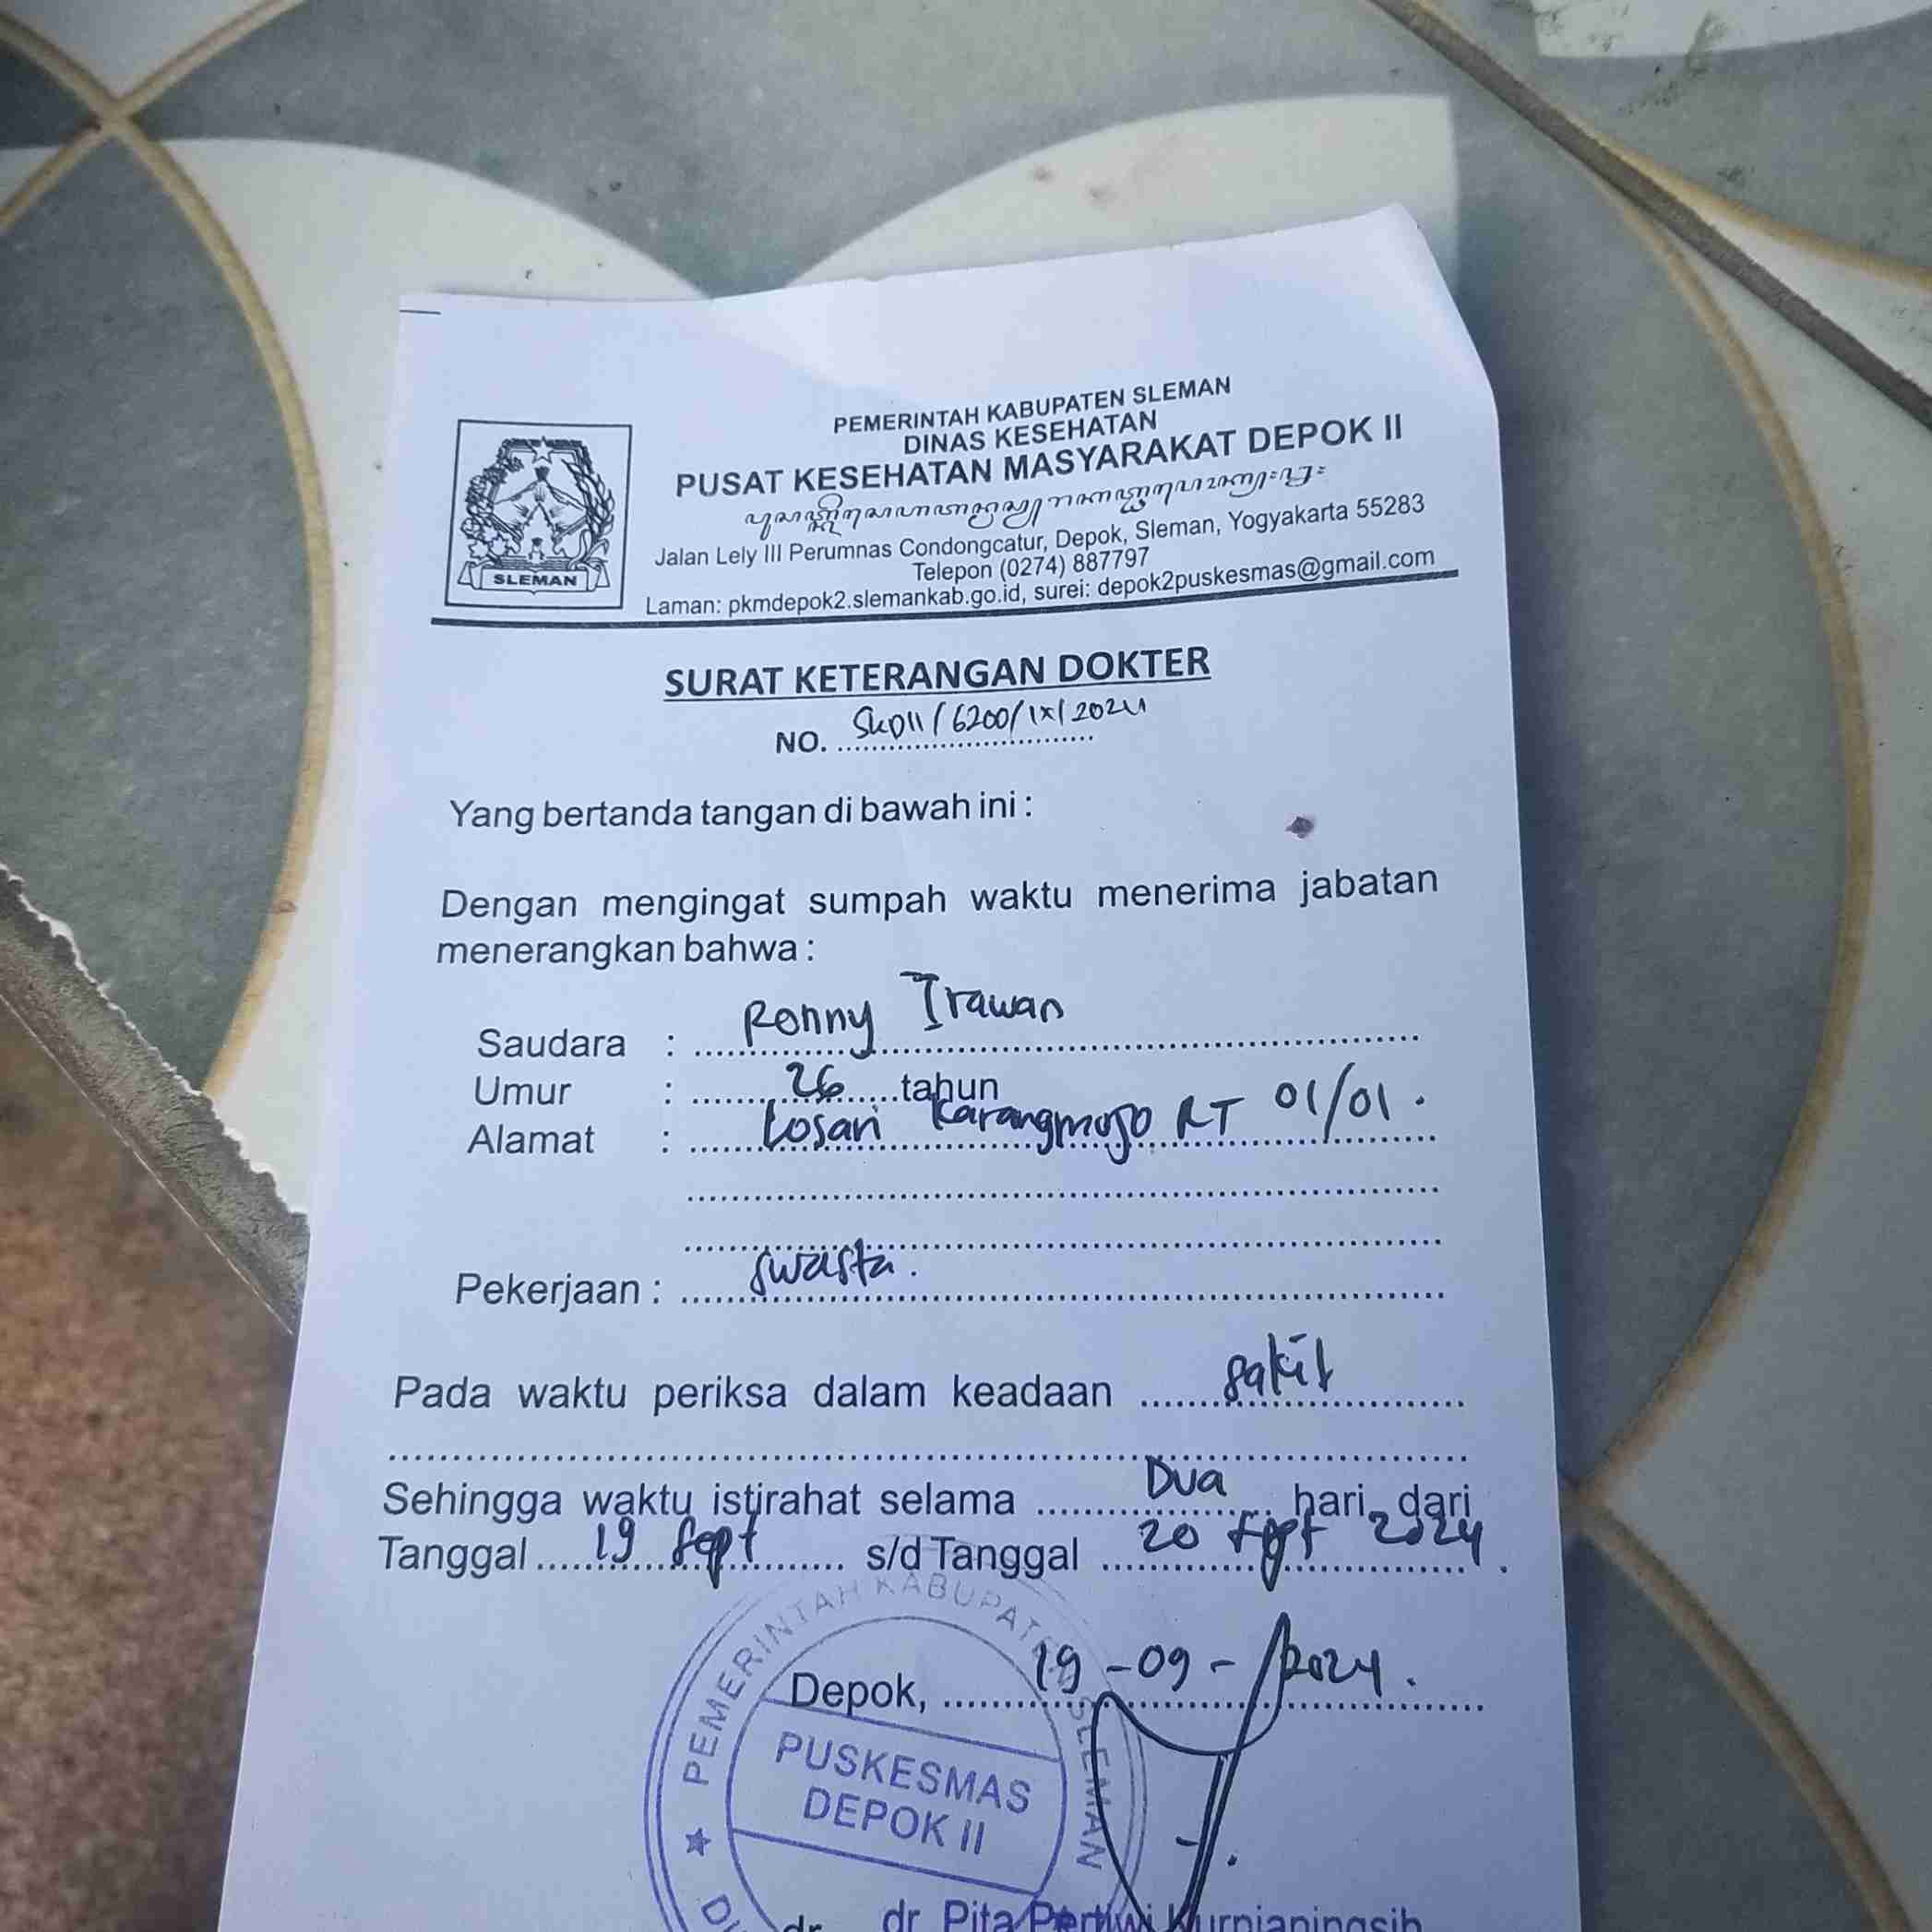 PEMERINTAH KABUPATEN SLEMAN
DINAS KESEHATAN
PUSAT KESEHATAN MASYARAKAT DEPOK II
Jalan Lely III Perumnas Condongcatur, Depok, Sleman, Yogyakarta 55283
Telepon (0274) 887797
Laman: pkmdepok2.slemankab.go.id, surei: depok2puskesmas@gmail.com
SLEMAN
SURAT KETERANGAN DOKTER
NO. SKDII/6200/IX/2024
Yang bertanda tangan di bawah ini :
Dengan mengingat sumpah waktu menerima jabatan
menerangkan bahwa :
Saudara : Ronny Irawan
Umur : 26 tahun
Alamat : Losari Karangmojo RT 01/01.
Pekerjaan : Swasta.
Pada waktu periksa dalam keadaan sakit
Sehingga waktu istirahat selama Dua hari dari
Tanggal 19 Sept s/d Tanggal 20 Sept 2024
Depok, 19-09-2024.
PEMERINTAH KABUPATEN SLEMAN
PUSKESMAS
DEPOK II
dr. dr Pita Pertiwi Kurnianingsih